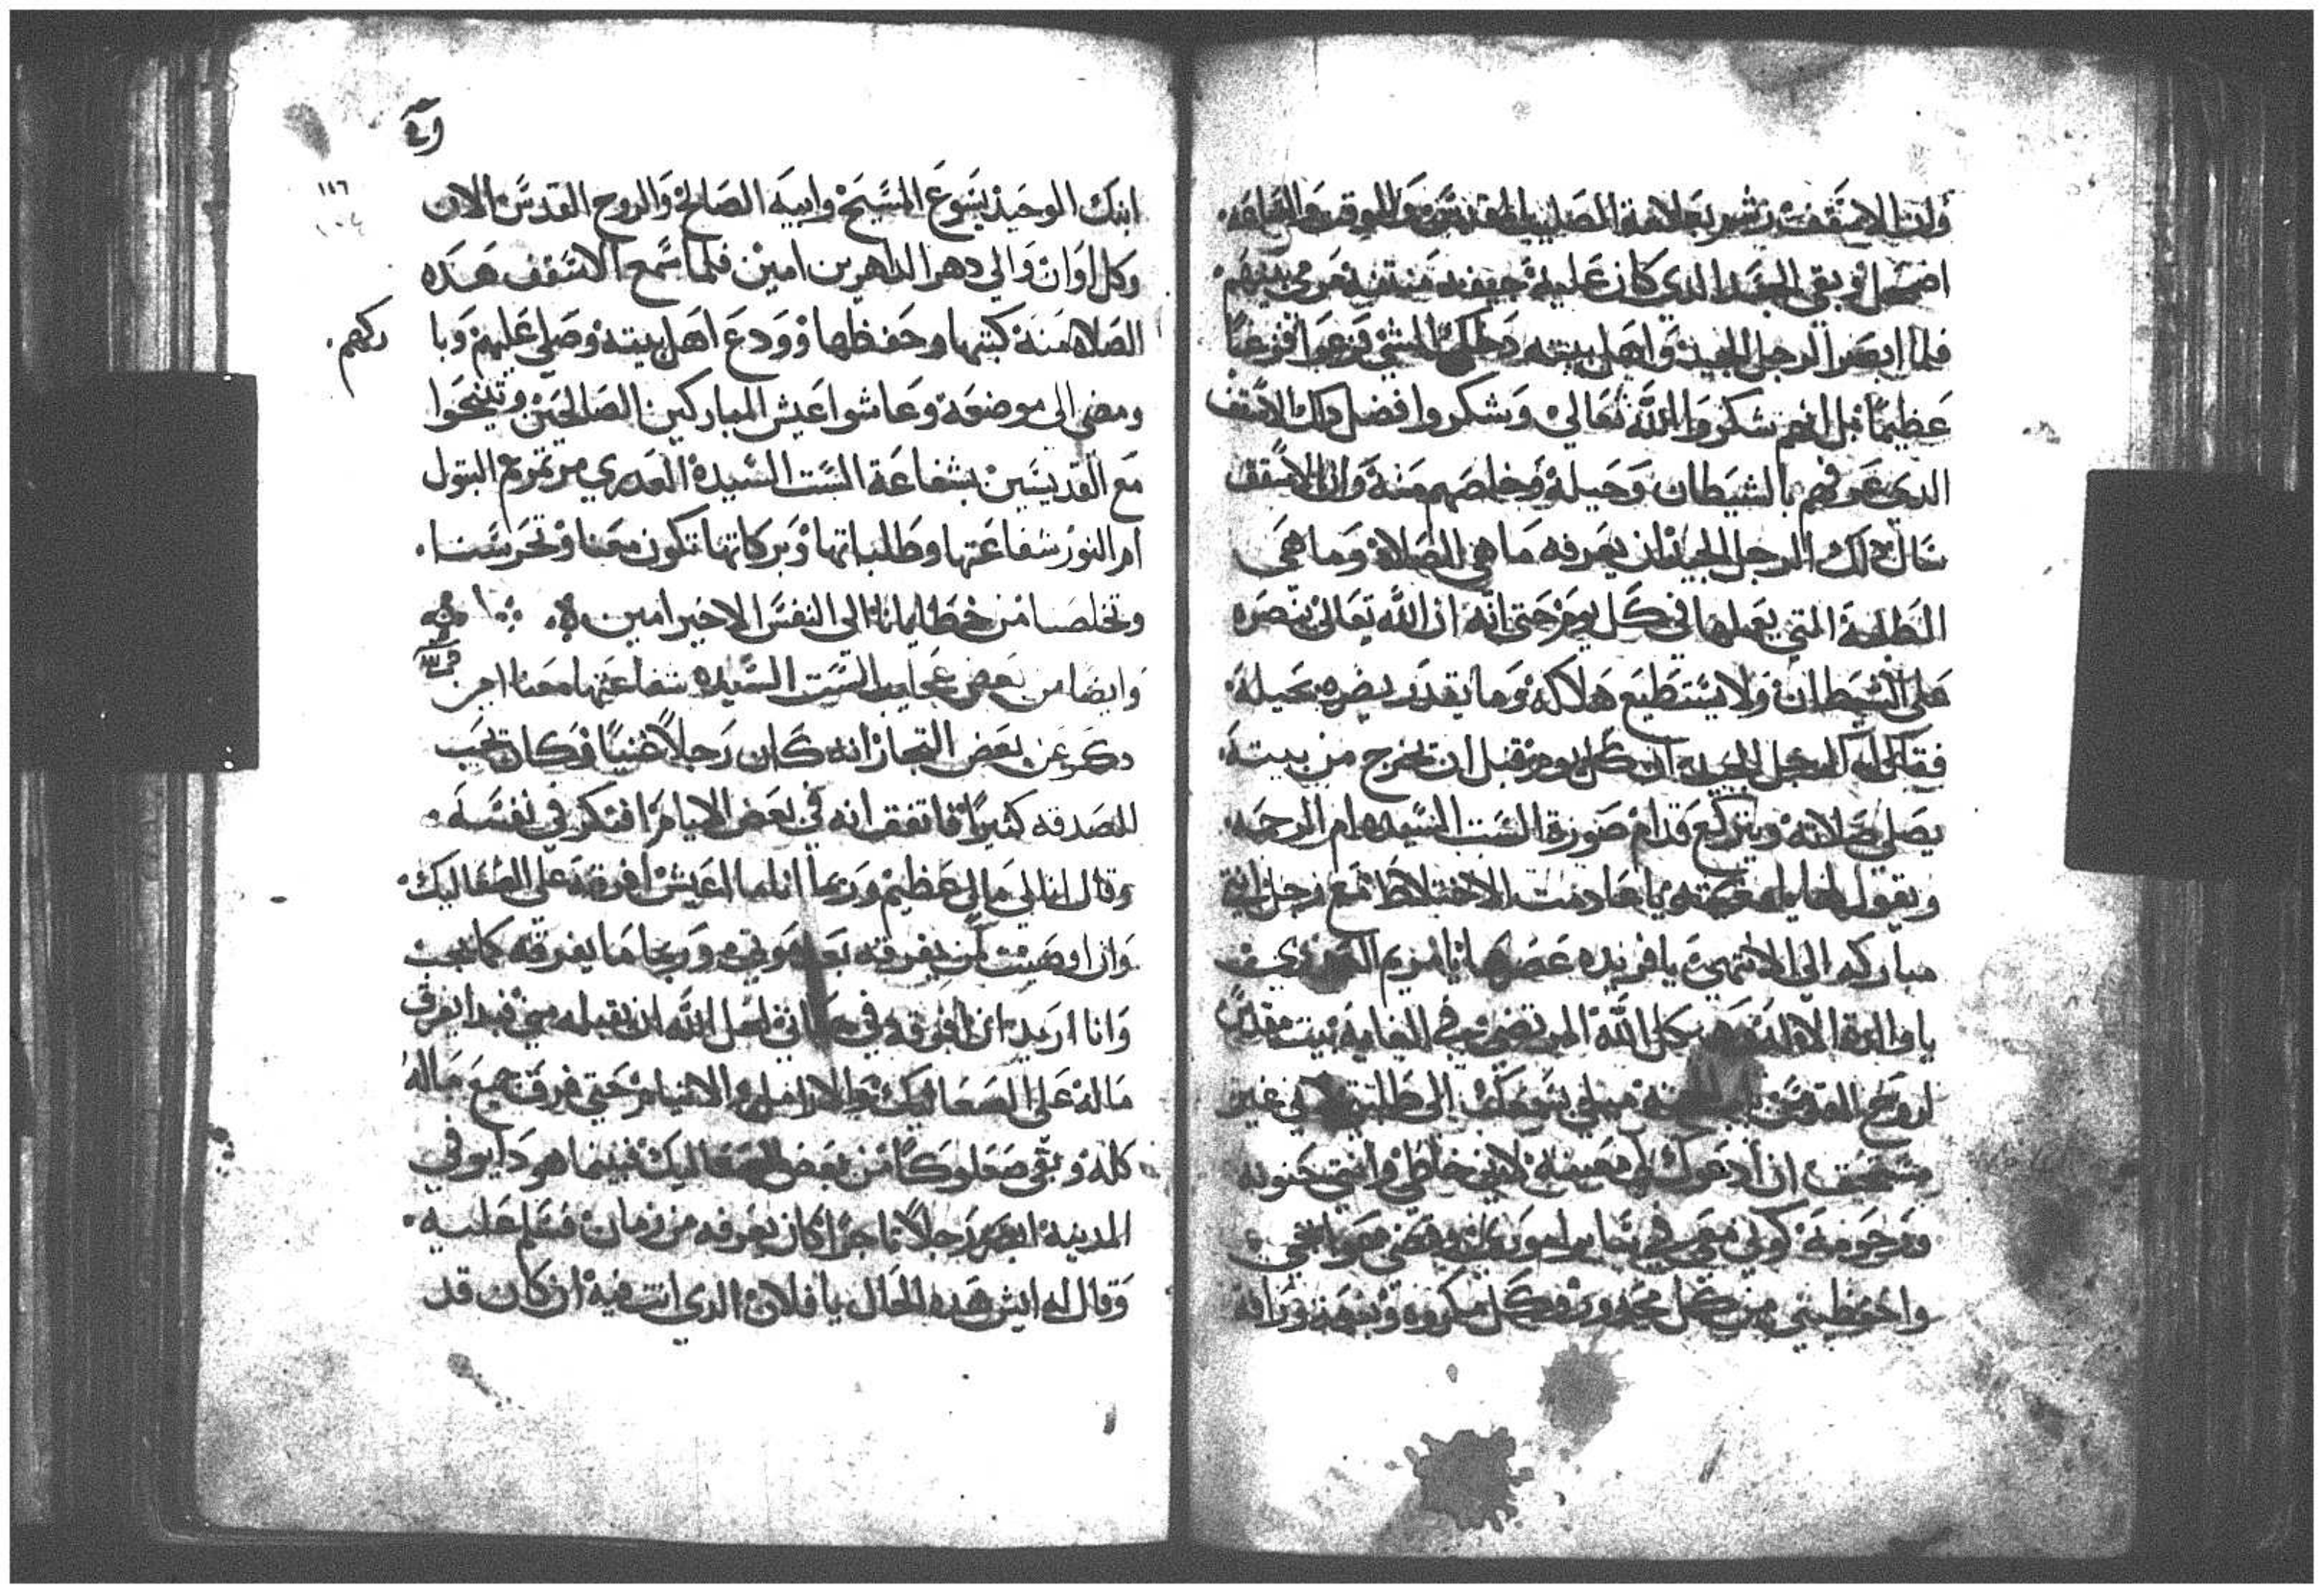 وان الاسقف رشم بعلامة الصليب المقدس وللوقت والساعه
اضمحل وبقي الجسد الدي كان عليه جيفه منتنه مرمي بينهم
فلما ابصر الرجل الجيد واهل بيته دلك الشي فزعوا فزعاً
عظيماً قبل انهم شكروا الله تعالي وشكروا فضل دلك الاسقف
الدي عرفهم بالشيطان وحيله وخلصهم منه وان الاسقف
سال دلك الرجل الجيد ان يعرفه ما هي الصلاة وما هي
الطلبة التي يعملها في كل يوم حتي انه ان الله تعالي ينصره
علي الشيطان ولا يستطيع هلاكه وما يقدر يضره بحيله
فقال له الرجل الجيد ان كل يوم قبل ان يخرج من بيته
يصلي صلاته ويركع قدام صورة الست السيده ام الرحمه
ويقول يا عادمت الاختلاط مع رجل انتي
مباركه الي الانتهي يا فريده عصرها يا مريم العفيف
يا والدة الاله وهيكل الله المرتضي في الغايه بيت مقدس
لروح القدس باب ميلي بسمعك الي طلبتي لاني غير
مستحق ان ادعوك لي معينه لاني خاطي وانتي حنونه
ومرحومة كوني معي في تدابير اموري
واحفظيني من كل محدور وكل مكروه ورافة
ابنك الوحيد يسوع المسيح وابيه الصالح والروح القدس الان
وكل اوان والي دهر الداهرين امين فلما سمع الاسقف هده
الصلاه منه كتبها وحفظها وودع اهل بيته وصلي عليهم وبا ركهم
ومضي الي موضعه وعاشوا عيش المباركين الصالحين وتنيحوا
مع القديسين بشفاعة الست السيدة العدري مرتمريم البتول
ام النور شفاعتها وطلباتها وبركاتها تكون معنا وتحرسنا
وتخلصنا من خطايانا الي النفس الاخير امين
وايضا من بعض عجايب الست السيده شفاعتها معنا امين
دكر عن بعض التجار انه كان رجلاً غنياً وكان يحب
الصدقه كثيراً فاتفق انه في بعض الايام افتكر في نفسه
وقال انا لي مال عظيم وربما انا ما اعيش افرقه علي الصعاليك
وان اوصيت لمن يفرقه بعد موتي وربما ما يفرقه كما يجب
وانا اريد ان افرقه في حياتي لعل الله ان يقبله مني فبدا يفرق
ماله علي الصعاليك والارامل والايتام حتي فرق جميع ماله
كله وبقي صعلوكاً من بعض الصعاليك فبينما هو داير في
المدينه ابصر رجلاً تاجراً كان يعرفه من زمان فسلم عليه
وقال له ايش هده الحال يا فلان الدي انت فيه ان كان قد